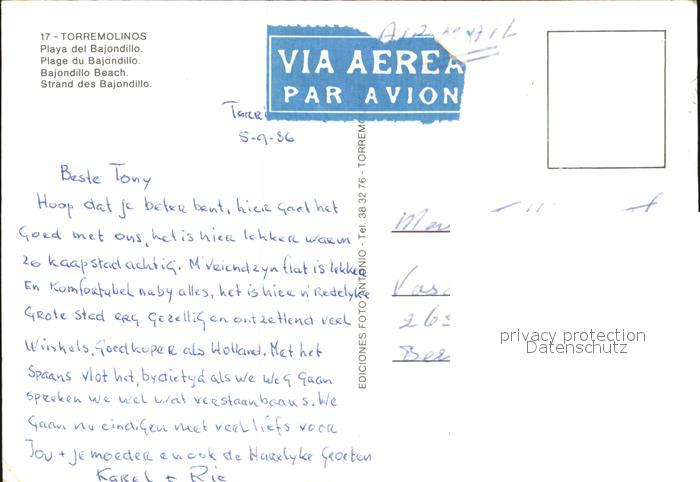 17 - TORREMOLINOS
Playa del Bajondillo.
Plage du Bajondillo.
Bajondillo Beach.
Strand des Bajondillo.
AIR MAIL
VIA AEREA
PAR AVION
5-9-86
Beste Tony
Hoop dat je beter bent, hier gaat het
Goed met ons, het is hier lekker warm
zo kaapstadachtig. M'vriend zyn flat is lekker
En Komfortabel naby alles, het is hier n' Redelyke
Grote stad erg gezellig en ontzettend veel
Winkels, Goedkoper als Holland. Met het
Spaans vlot het, by die tyd als we weg gaan
spreken we wel wat verstaanbaars. We
Gaan nu eindigen met veel liefs voor
Jou + je moeder en ook de Hartelyke Groeten
Karel + Rie
EDICIONES FOTO ANTONIO - Tel. 38 32 76 - TORREMO
Vas
263
Ber
privacy protection
Datenschutz